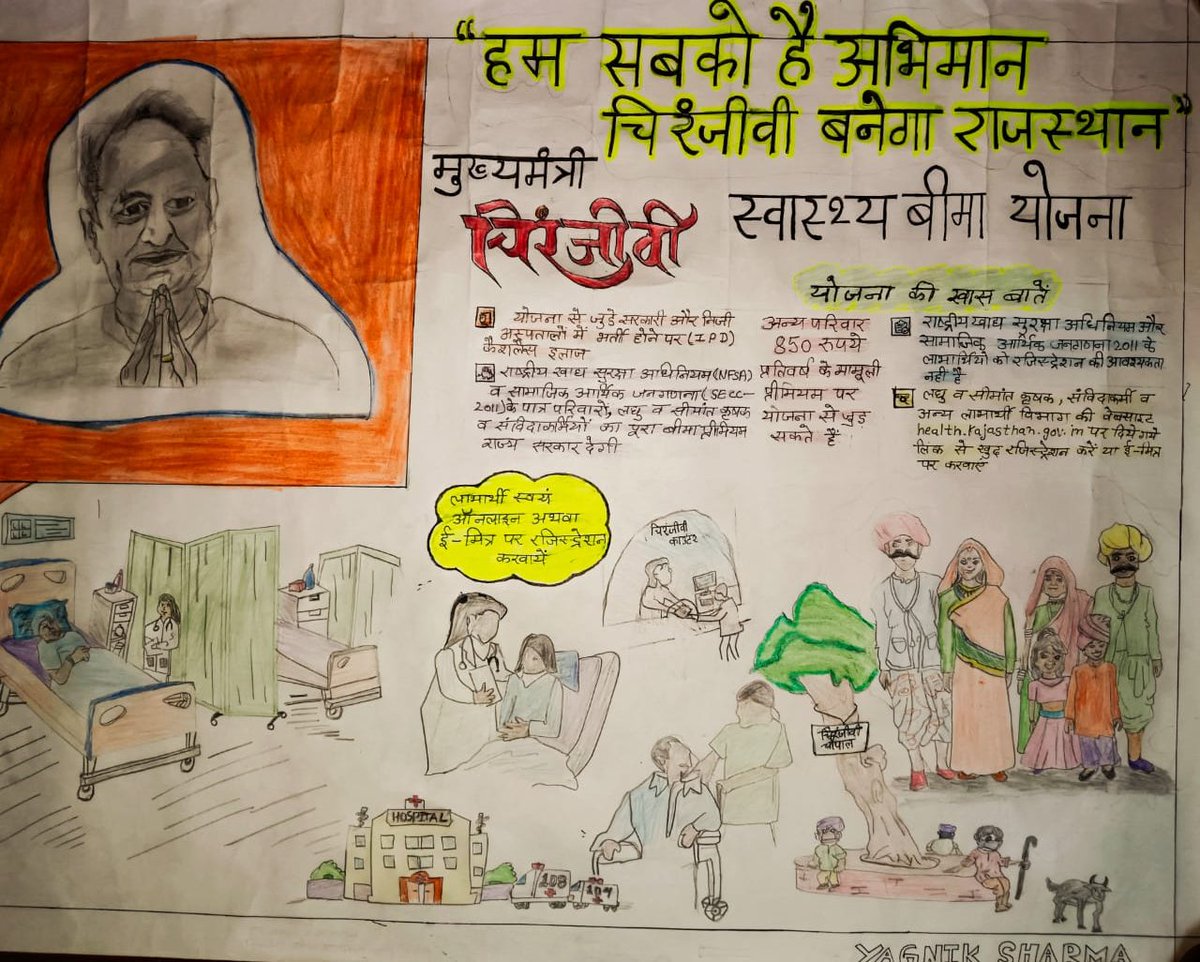 “हम सबको है अभिमान
चिरंजीवी बनेगा राजस्थान”
मुख्यमंत्री
चिरंजीवी स्वास्थ्य बीमा योजना
योजना की खास बातें
योजना से जुडे सरकारी और निजी
अस्पतालो में भर्ती होने पर (IPD)
कैशलेस इलाज
राष्ट्रीय खाद्य सुरक्षा अधिनियम(NFSA)
व सामाजिक आर्थिक जनगणना( SECC-
2011)के पात्र परिवारों, लघु व सीमांत कृषक
व संविदाकर्मियों का पूरा बीमा प्रीमियम
राज्य सरकार देगी
अन्य परिवार
850 रुपये
प्रतिवर्ष के मामूली
प्रीमियम पर
योजना से जुड़
सकते हैं
राष्ट्रीय खाद्य सुरक्षा अधिनियम और
सामाजिक आर्थिक जनगणना 2011 के
लाभार्थियों को रजिस्ट्रेशन की आवश्यकता
नही है
लघु व सीमांत कृषक, संविदाकर्मी व
अन्य लाभार्थी विभाग की वेबसाइट
health.rajasthan.gov.in पर दिये गये
लिंक से खुद रजिस्ट्रेशन करें या ई-मित्र
पर करवाएं
लाभार्थी स्वयं
ऑनलाइन अथवा
ई-मित्र पर रजिस्ट्रेशन
करवायें
चिरंजीवी
काउंटर
चिरंजीवी
चौपाल
HOSPITAL
108
104
YAGNIK SHARMA